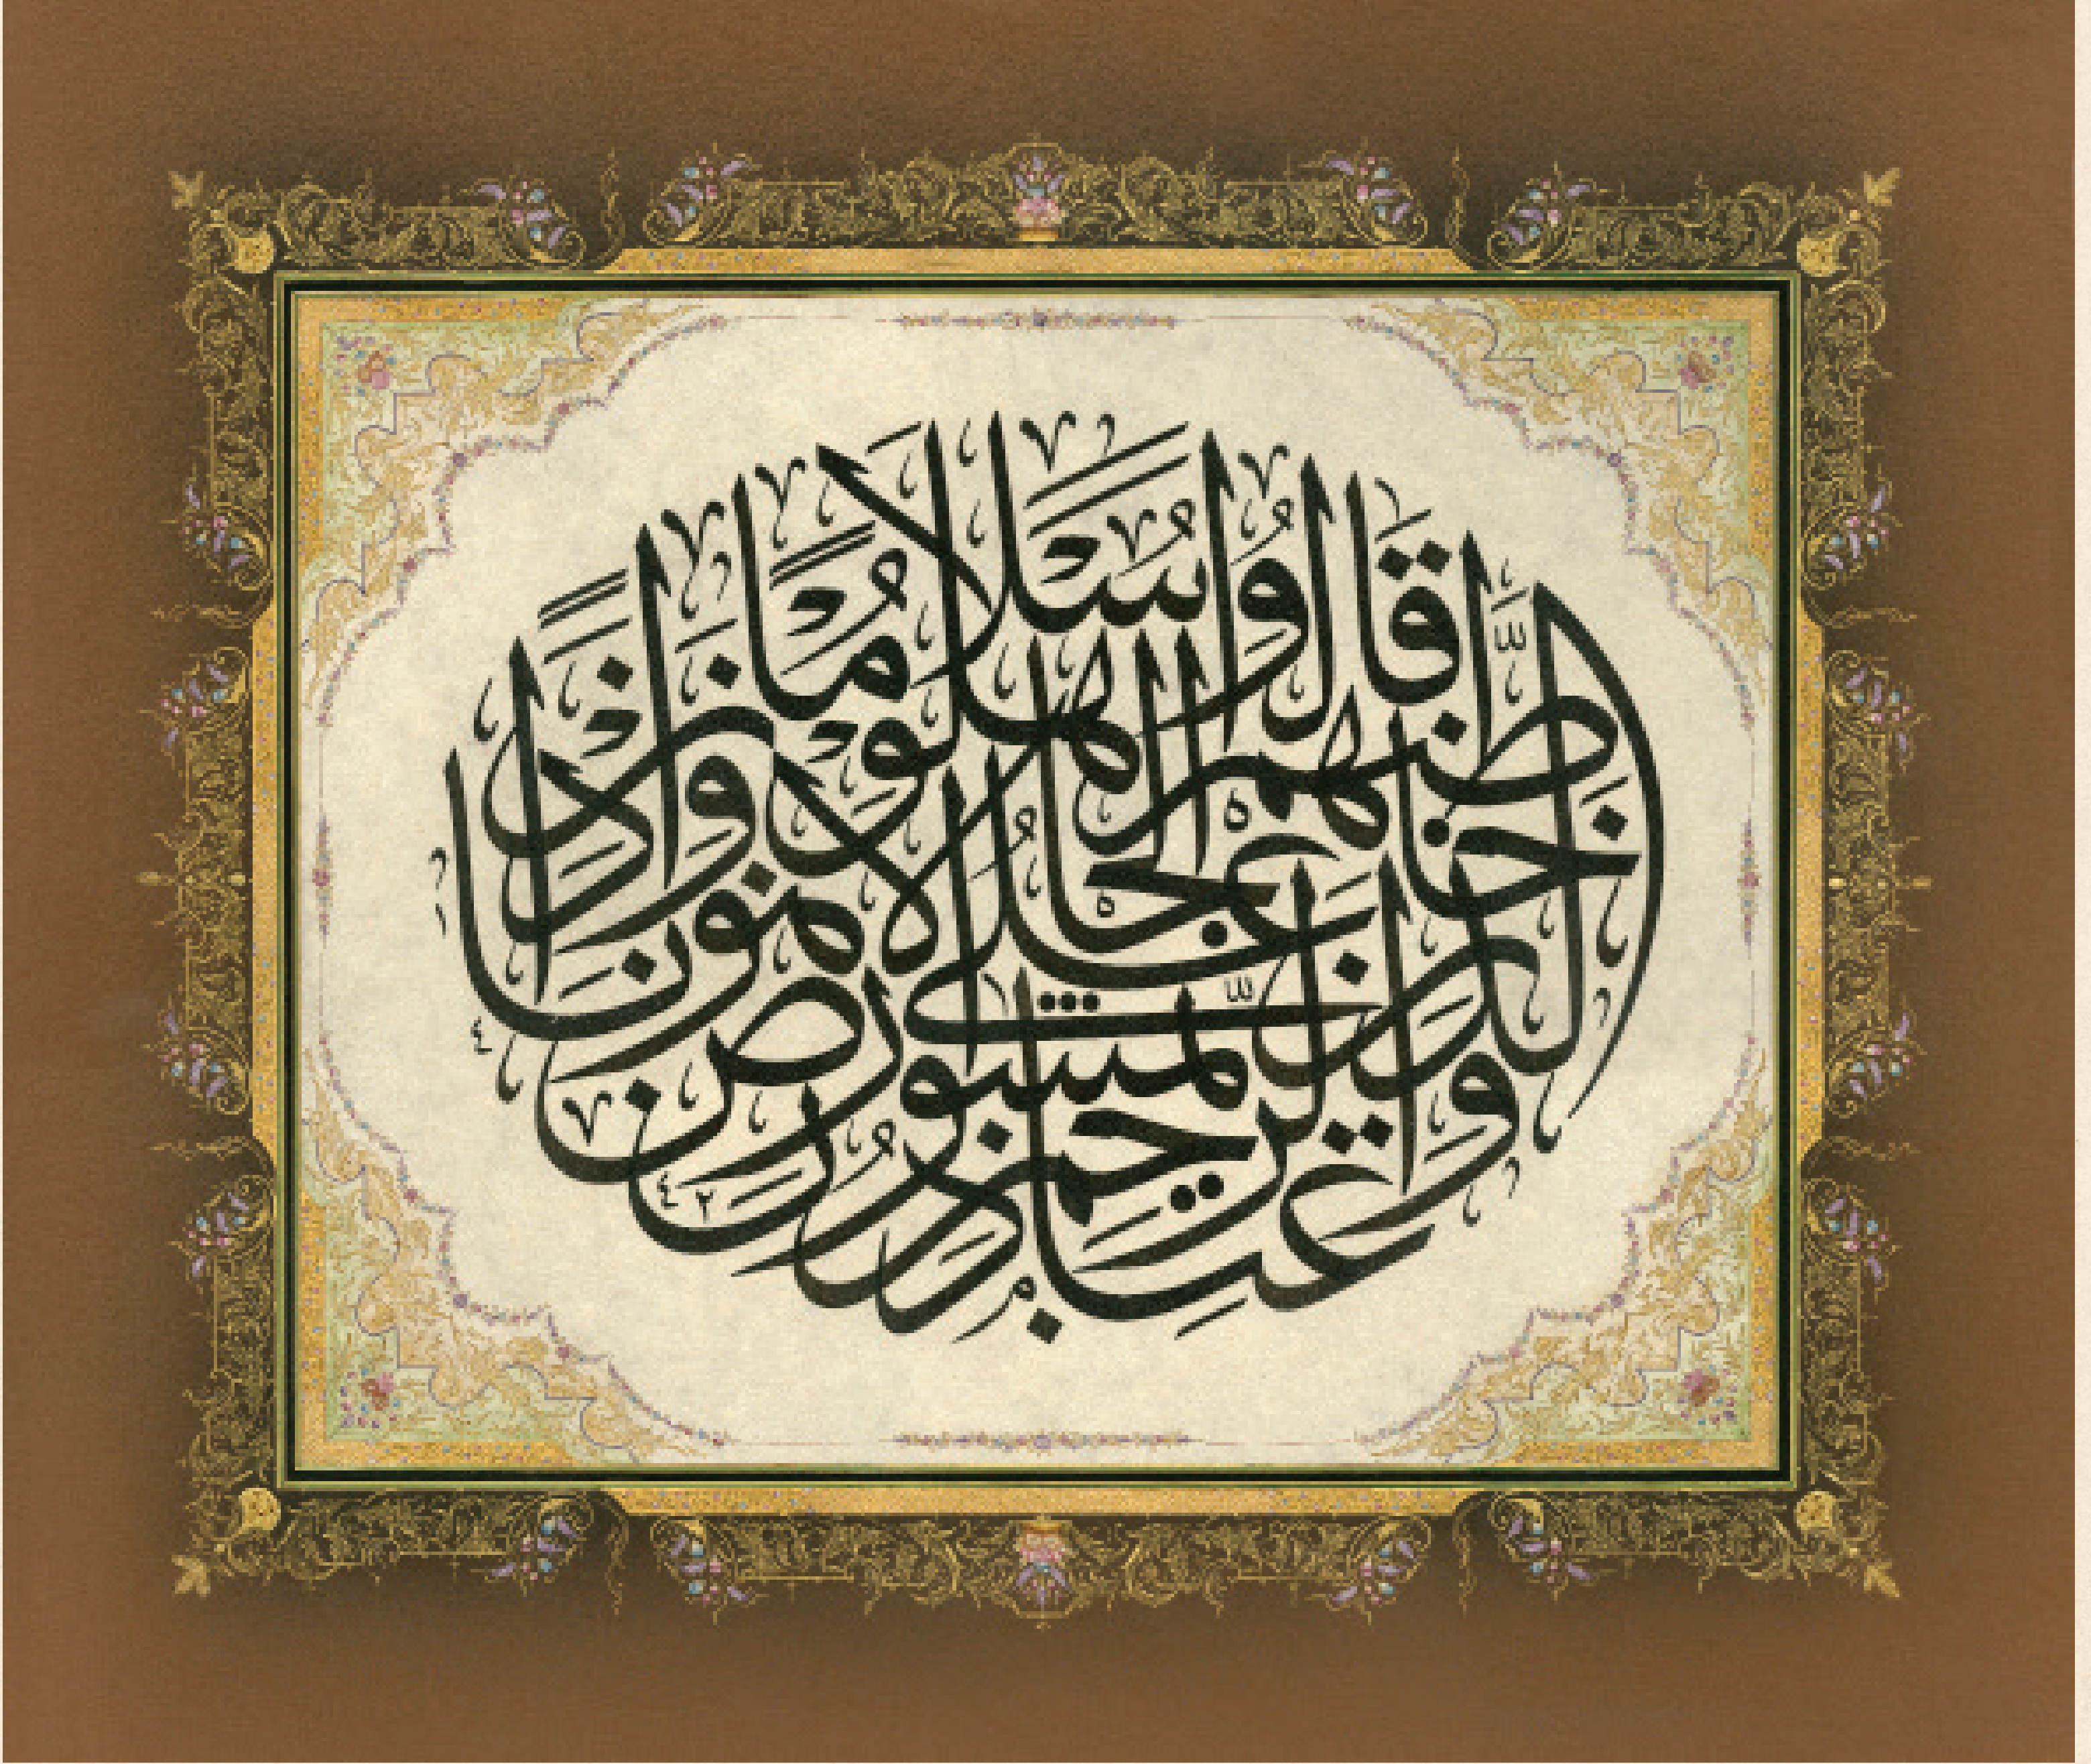 وَعِبَادُ الرَّحْمٰنِ الَّذِينَ يَمْشُونَ عَلَى الْأَرْضِ هَوْنًا وَإِذَا خَاطَبَهُمُ الْجَاهِلُونَ قَالُوا سَلَامًا